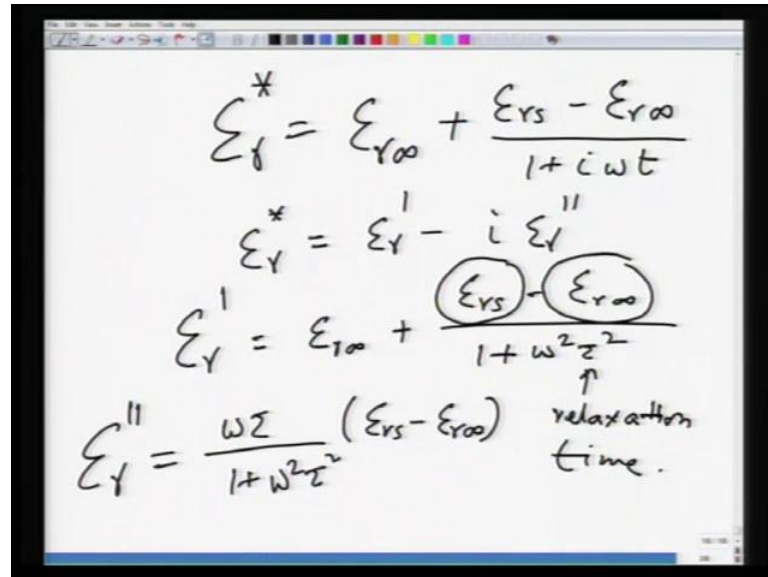 εᵣ* = εᵣ∞ + (εᵣₛ - εᵣ∞) / (1 + iωt)
εᵣ* = εᵣ' - i εᵣ''
εᵣ' = εᵣ∞ + (εᵣₛ - εᵣ∞) / (1 + ω²τ²)
↑
εᵣ'' = ωτ / (1 + ω²τ²) (εᵣₛ - εᵣ∞)
relaxation
time.